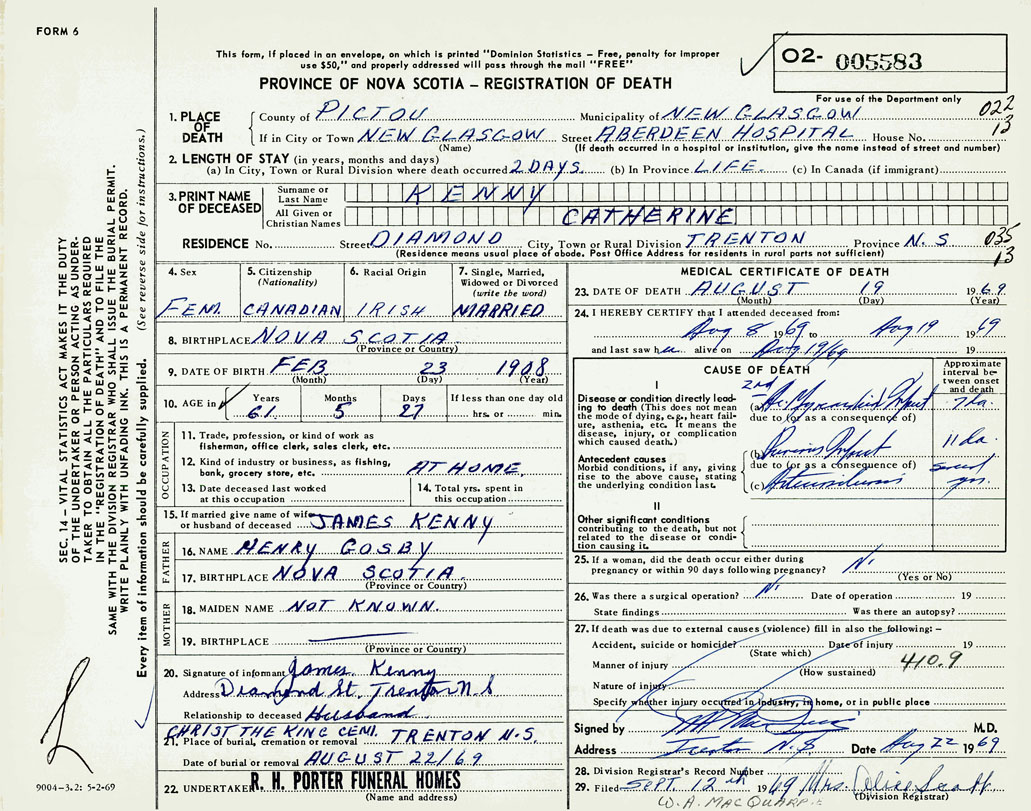 FORM 6
This form, if placed in an envelope, on which is printed "Dominion Statistics – Free, penalty for improper
use $50," and properly addressed will pass through the mail "FREE"
O2- 005583
PROVINCE OF NOVA SCOTIA – REGISTRATION OF DEATH
For use of the Department only
1. PLACE OF DEATH
County of PICTOU Municipality of NEW GLASGOW 022
If in City or Town NEW GLASGOW Street ABERDEEN HOSPITAL House No. 13
(Name) (If death occurred in a hospital or institution, give the name instead of street and number)
2. LENGTH OF STAY (in years, months and days)
(a) In City, Town or Rural Division where death occurred 2 DAYS. (b) In Province LIFE. (c) In Canada (if immigrant)
3. PRINT NAME OF DECEASED
Surname or Last Name KENNY
All Given or Christian Names CATHERINE
RESIDENCE No. Street DIAMOND City, Town or Rural Division TRENTON Province N.S 035
(Residence means usual place of abode. Post Office Address for residents in rural parts not sufficient) 13
4. Sex FEM.
5. Citizenship (Nationality) CANADIAN
6. Racial Origin IRISH
7. Single, Married, Widowed or Divorced (write the word) MARRIED
8. BIRTHPLACE NOVA SCOTIA
(Province or Country)
9. DATE OF BIRTH FEB 23 1908
(Month) (Day) (Year)
10. AGE in Years Months Days If less than one day old
61 5 27 hrs. or min.
OCCUPATION
11. Trade, profession, or kind of work as
fisherman, office clerk, sales clerk, etc.
12. Kind of industry or business, as fishing,
bank, grocery store, etc. AT HOME.
13. Date deceased last worked
at this occupation
14. Total yrs. spent in
this occupation
15. If married give name of wife
or husband of deceased JAMES KENNY
FATHER
16. NAME HENRY GOSBY
17. BIRTHPLACE NOVA SCOTIA.
(Province or Country)
MOTHER
18. MAIDEN NAME NOT KNOWN.
19. BIRTHPLACE
(Province or Country)
20. Signature of informant James Kenny
Address Diamond St. Trenton N.S
Relationship to deceased Husband
CHRIST THE KING CEM. TRENTON N.S.
21. Place of burial, cremation or removal
Date of burial or removal AUGUST 22/69
22. UNDERTAKER R. H. PORTER FUNERAL HOMES
(Name and address)
MEDICAL CERTIFICATE OF DEATH
23. DATE OF DEATH AUGUST 19 1969
(Month) (Day) (Year)
24. I HEREBY CERTIFY that I attended deceased from:
Aug 8 1969 to Aug 19 1969
and last saw her alive on Aug 19/69 19
CAUSE OF DEATH
Approximate interval between onset and death
I
Disease or condition directly leading to death (This does not
mean the mode of dying, e.g., heart failure, asthenia, etc. It means the
disease, injury, or complication
which caused death.)
2nd
(a) Ac. Myocardial Infarct
due to (or as a consequence of)
Antecedent causes
Morbid conditions, if any, giving
rise to the above cause, stating
the underlying condition last.
(b) Previous Infarct 11 da.
due to (or as a consequence of)
(c) Arteriosclerosis several yrs.
II
Other significant conditions
contributing to the death, but not
related to the disease or condition causing it.
25. If a woman, did the death occur either during
pregnancy or within 90 days following pregnancy?
(Yes or No)
26. Was there a surgical operation? Date of operation 19
State findings Was there an autopsy?
27. If death was due to external causes (violence) fill in also the following: –
Accident, suicide or homicide? Date of injury 19
(State which)
Manner of injury 410.9
(How sustained)
Nature of injury
Specify whether injury occurred in industry, in home, or in public place
Signed by M.D.
Address Trenton N.S Date Aug 22 1969
28. Division Registrar's Record Number
29. Filed SEPT. 12th 1969 Mrs. Alice Scott
(Division Registrar)
SEC. 14 – VITAL STATISTICS ACT MAKES IT THE DUTY
OF THE UNDERTAKER OR PERSON ACTING AS UNDER-
TAKER TO OBTAIN ALL THE PARTICULARS REQUIRED
IN THE "REGISTRATION OF DEATH" AND TO FILE THE
SAME WITH THE DIVISION REGISTRAR WHO SHALL ISSUE THE BURIAL PERMIT.
WRITE PLAINLY WITH UNFADING INK. THIS IS A PERMANENT RECORD.
Every item of information should be carefully supplied. (See reverse side for instructions.)
9004–3.2: 5-2-69